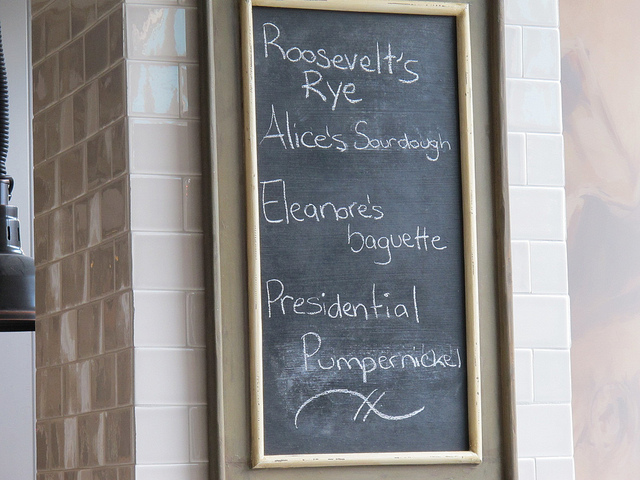 Roosevelt's
Rye
Alice's Sourdough
Eleanore's
baguette
Presidential
Pumpernickel